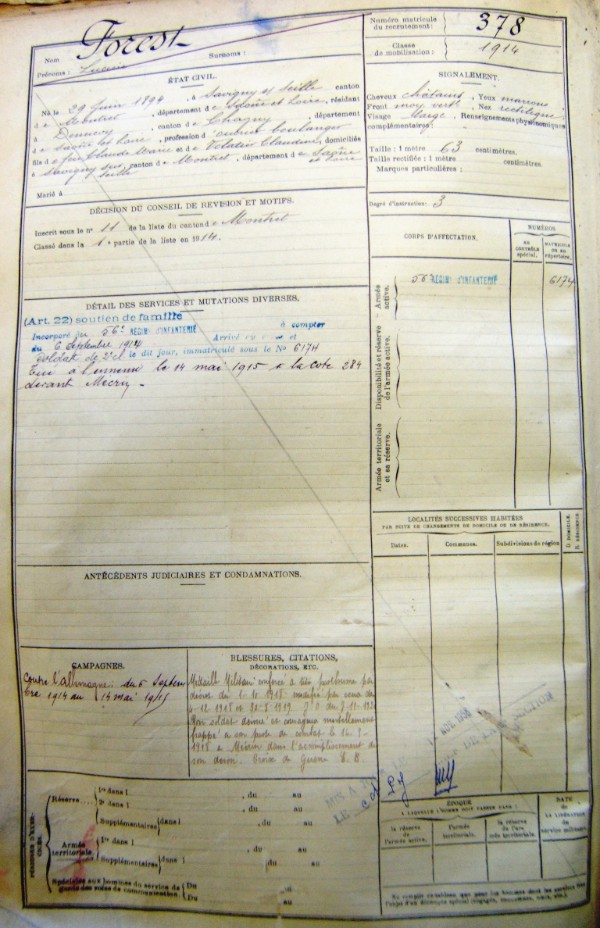 Nom Forest
Prénoms : Lucien Surnoms :
Numéro matricule
du recrutement : 378
Classe
de mobilisation : 1914
ÉTAT CIVIL.
Né le 29 Juin 1894, à Savigny s/ Seille canton
de Montret, département de Saône et Loire, résidant
à Dennevy, canton de Chagny, département
de Saône et Loire, profession d'ouvrier boulanger
fils de feu Claude Marie et de Volatier Claudine, domiciliés
à Savigny sur Seille canton de Montret, département de Saône et Loire
Marié à
SIGNALEMENT.
Cheveux châtains, Yeux marrons
Front moy vert, Nez rectiligne
Visage large, Renseignements physionomiques
complémentaires :
Taille : 1 mètre 63 centimètres.
Taille rectifiée : 1 mètre centimètres.
Marques particulières :
Degré d'instruction : 3
DÉCISION DU CONSEIL DE REVISION ET MOTIFS.
Inscrit sous le n° 11 de la liste du canton de Montret
Classé dans la 1e partie de la liste en 1914.
DÉTAIL DES SERVICES ET MUTATIONS DIVERSES.
(Art. 22) soutien de famille
Incorporé au 56e RÉGIMENT D'INFANTERIE à compter
du 6 Septembre 1914 Arrivé au corps et
soldat de 2e cl le dit jour, immatriculé sous le N° 6174
Tué à l'ennemi le 14 mai 1915 à la cote 284
devant Mécrin
CORPS D'AFFECTATION.
NUMÉROS
AU CONTRÔLE SPÉCIAL.
MATRICULE OU AU RÉPERTOIRE.
Armée active.
56e RÉGIMENT D'INFANTERIE 6174
Disponibilité et réserve de l'armée active.
Armée territoriale et sa réserve.
LOCALITÉS SUCCESSIVES HABITÉES
PAR SUITE DE CHANGEMENTS DE DOMICILE OU DE RÉSIDENCE.
Dates. Communes. Subdivisions de région D. DOMICILE. R. RÉSIDENCE.
ANTÉCÉDENTS JUDICIAIRES ET CONDAMNATIONS.
CAMPAGNES.
Contre l'Allemagne : du 6 Septem
bre 1914 au 14 mai 1915
BLESSURES, CITATIONS,
DÉCORATIONS, ETC.
Médaille Militaire conférée à titre posthume par
Bon soldat dévoué et courageux mortellement
frappé à son poste de combat le 14-5-
1915 à Mécrin dans l'accomplissement de
son devoir. Croix de Guerre E. B.
PÉRIODES D'EXERCICES.
Réserve
1re dans l , du au
2e dans l , du au
Supplémentaires dans l , du au
Armée territoriale.
1re dans l , du au
Supplémentaires dans l , du au
Spéciales aux hommes du service de
garde des voies de communication.
Du au
Du au
ÉPOQUE
À LAQUELLE L'HOMME DOIT PASSER DANS :
la réserve de l'armée active.
l'armée territoriale.
la réserve de l'armée territoriale.
DATE
de
LA LIBÉRATION
du service militaire.